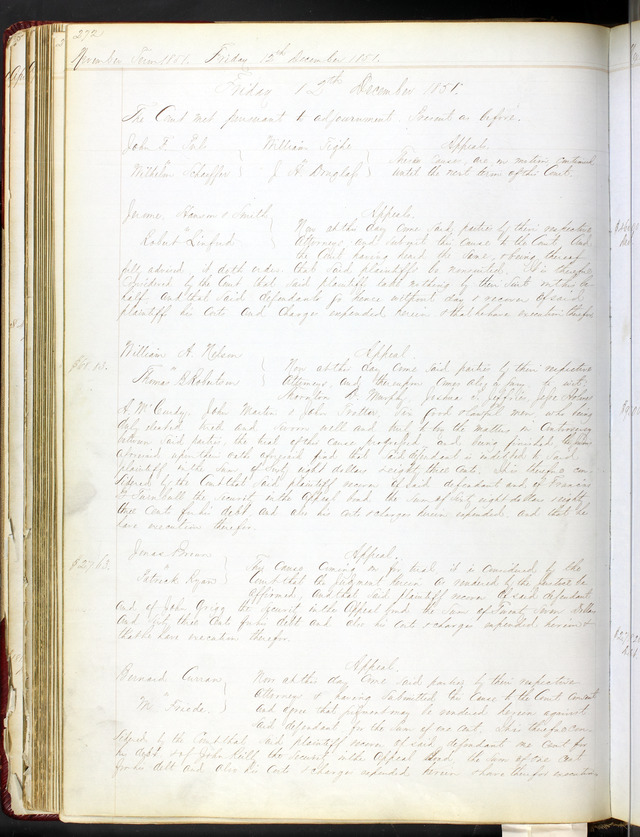 272
November Term 1851. Friday 12th December 1851.
Friday 12th December 1851.
The Court met pursuant to adjournment. Present as before.
John F. William Tighe Appeals.
These causes are on motion continued
Wilhelm Schaeffer J. H. until the next term of this Court.
Jerome Hanson & Smith Appeals.
Now at this day come said parties by their respective
Robert Attorneys and submit this cause to the Court. And
the Court having heard the same & being thereof
fully advised it doth order that said plaintiffs be nonsuited. It is therefore
Considered by the Court that said plaintiff take nothing by their suit in this be
half. And that said defendants go hence without day & recover of said
plaintiffs his costs and charges expended herein & that he have execution therefor.
William A. Nelson Appeal.
Now at this day come said parties by their respective
Thomas B. Robertson Attorneys and thereupon comes also a jury to wit;
Murphy, Joshua
A. McCurdy, John Martin & John Trotter, Ten good & lawful men who being
duly elected tried and sworn well and truly to try the matters in controversy
between said parties, the trial of this cause progressed and being finished the jurors
aforesaid upon their oath aforesaid find that said defendant is indebted to said
plaintiff in the sum of Sixty eight dollars & eighty three cents. It is therefore con
sidered by the Court that said plaintiff recover of said defendant and of Francis
the security in the Appeal bond the sum of Sixty eight dollars & eighty
three cents for his debt and also his costs & charges herein expended and that he
have execution therefor.
Jonas Appeal.
$27.63. This cause coming on for trial it is considered by the
Patrick Ryan Court that the judgment herein as rendered by the justice be
affirmed, and that said plaintiff recover of said defendant
and of John Grigg the security in the Appeal bond the sum of Twenty Seven dollars
and Sixty three Cents for his debt and also his costs & charges expended herein &
that he have execution therefor.
Appeal.
Bernard Curran Now at this day come said parties by their respective
Attorneys & having submitted this cause to the Court consent
Wm. Friede. and agree that judgment may be rendered herein against
said defendant for the sum of one cent. It is therefore con
sidered by the Court that said plaintiff recover of said defendant one cent for
his debt & of John the security in the Appeal Bond the sum of one cent
for his debt and also his costs & charges expended herein & have therefor execution.